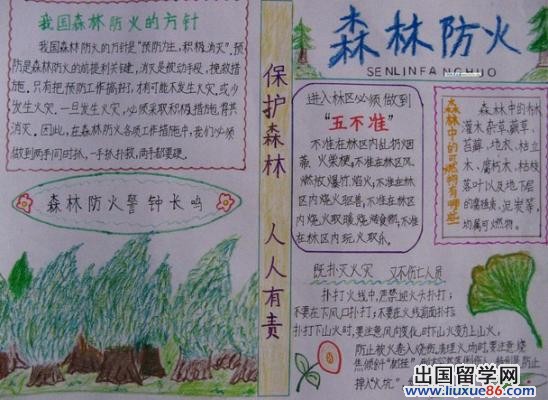 我国森林防火的方针
我国森林防火的方针是"预防为主，积极消灭"。预
防是森林防火的前提和关键，消灭是被动手段，挽救措
施。只有把预防工作搞好，才有可能不发生火灾，或少
发生火灾。一旦发生火灾，必须采取积极措施，将其
消灭。因此，在森林防火各项工作措施中，我们必须
做到两手同时抓，一手抓扑救，两手都要硬。
森林防火警钟长鸣
保护森林 人人有责
森林防火
SENLINFANGHUO
进入林区必须做到
"五不准"
不准在林区内乱扔烟
蒂、火柴梗，不准在林区
燃放爆竹、焰火；不准在林
区内烧火驱兽；不准在林区
内烧火取暖、烧
不准在林区内玩火取乐。
森林中的可燃物有哪些
森林中的
灌木、杂草、蕨草、
苔藓、地衣、枯立
木、腐朽木、枯枝
落叶以及地下层
的腐殖质、泥炭等，
均属可燃物。
既扑灭火灾 又不伤亡人员
扑打火线中，严禁迎火头扑打；
不要在下风口扑打；不要在火线前面扑打
扑打下山火时，要注意风向变化，时下山火变为上山火。
防止被火卷入烧伤，清理火场时，要注意烧
焦倾斜"树挂"
掉入"火坑"
出国留学网
www.liuxue86.com